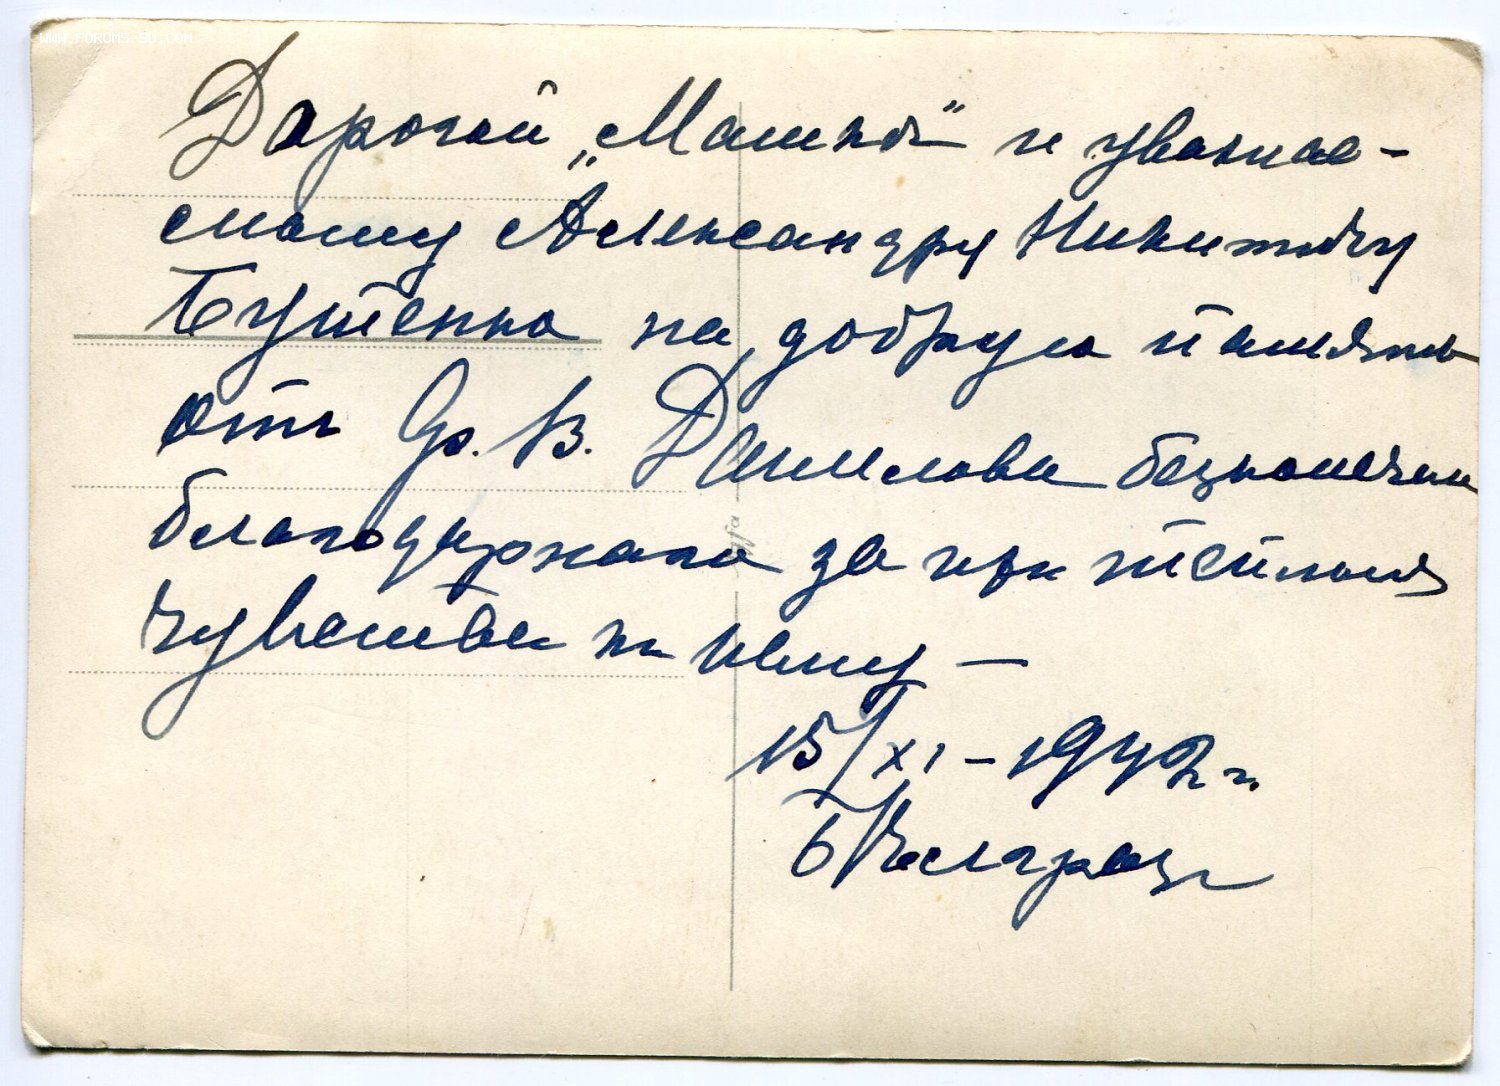 WWW.FORUMS-SU.COM
Дорогой „Машкѣ" и уважае-
мому Александру Никитичу
Бутенко на добрую память
отъ Ф. В. Данилова безконечно
благодарнаго за их теплыя
чувства к нему —
15/XI – 1942 г.
Бѣлград